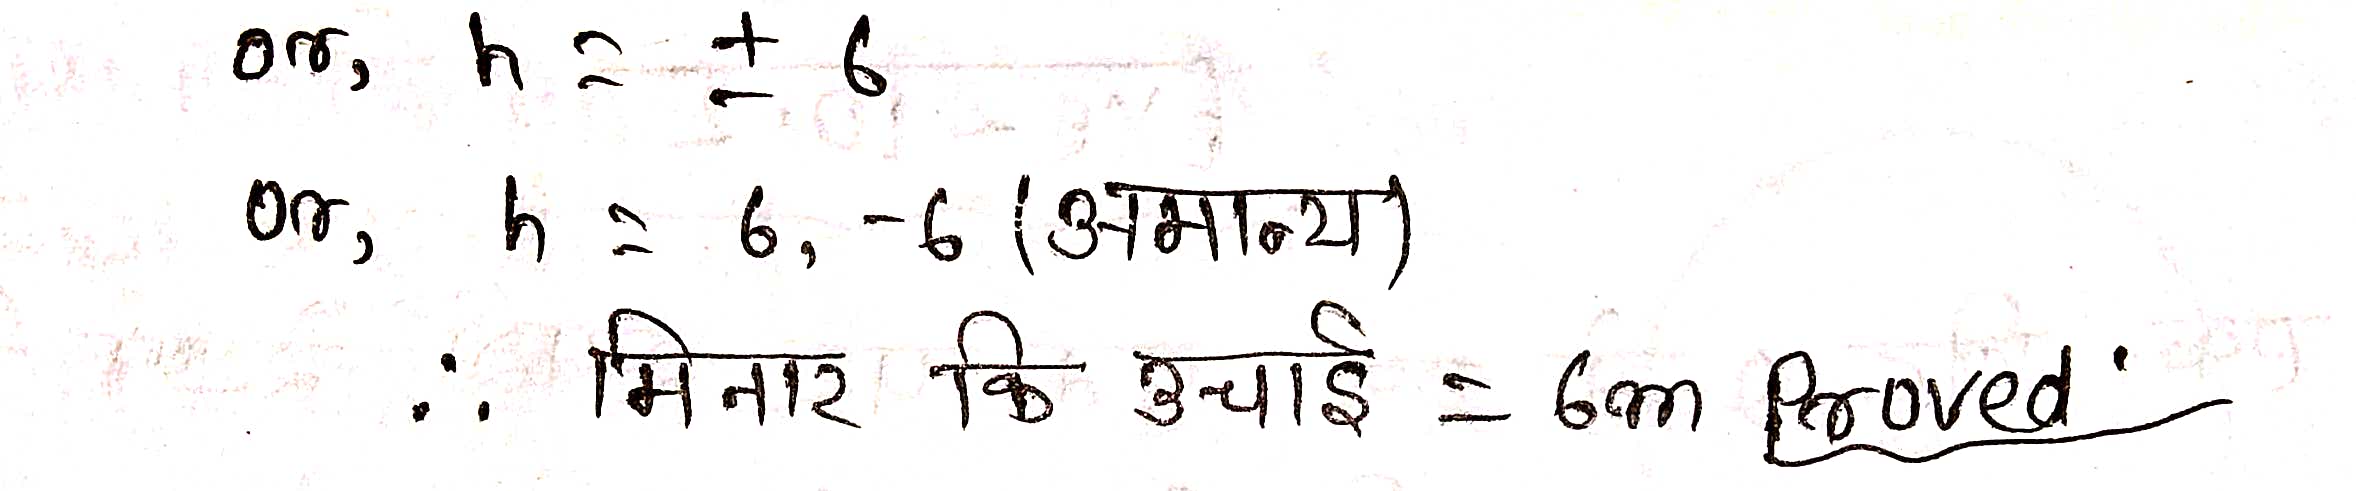 or, h = ± 6
or, h = 6, -6 (अमान्य)
∴ मिनार कि उचाई = 6m Proved.